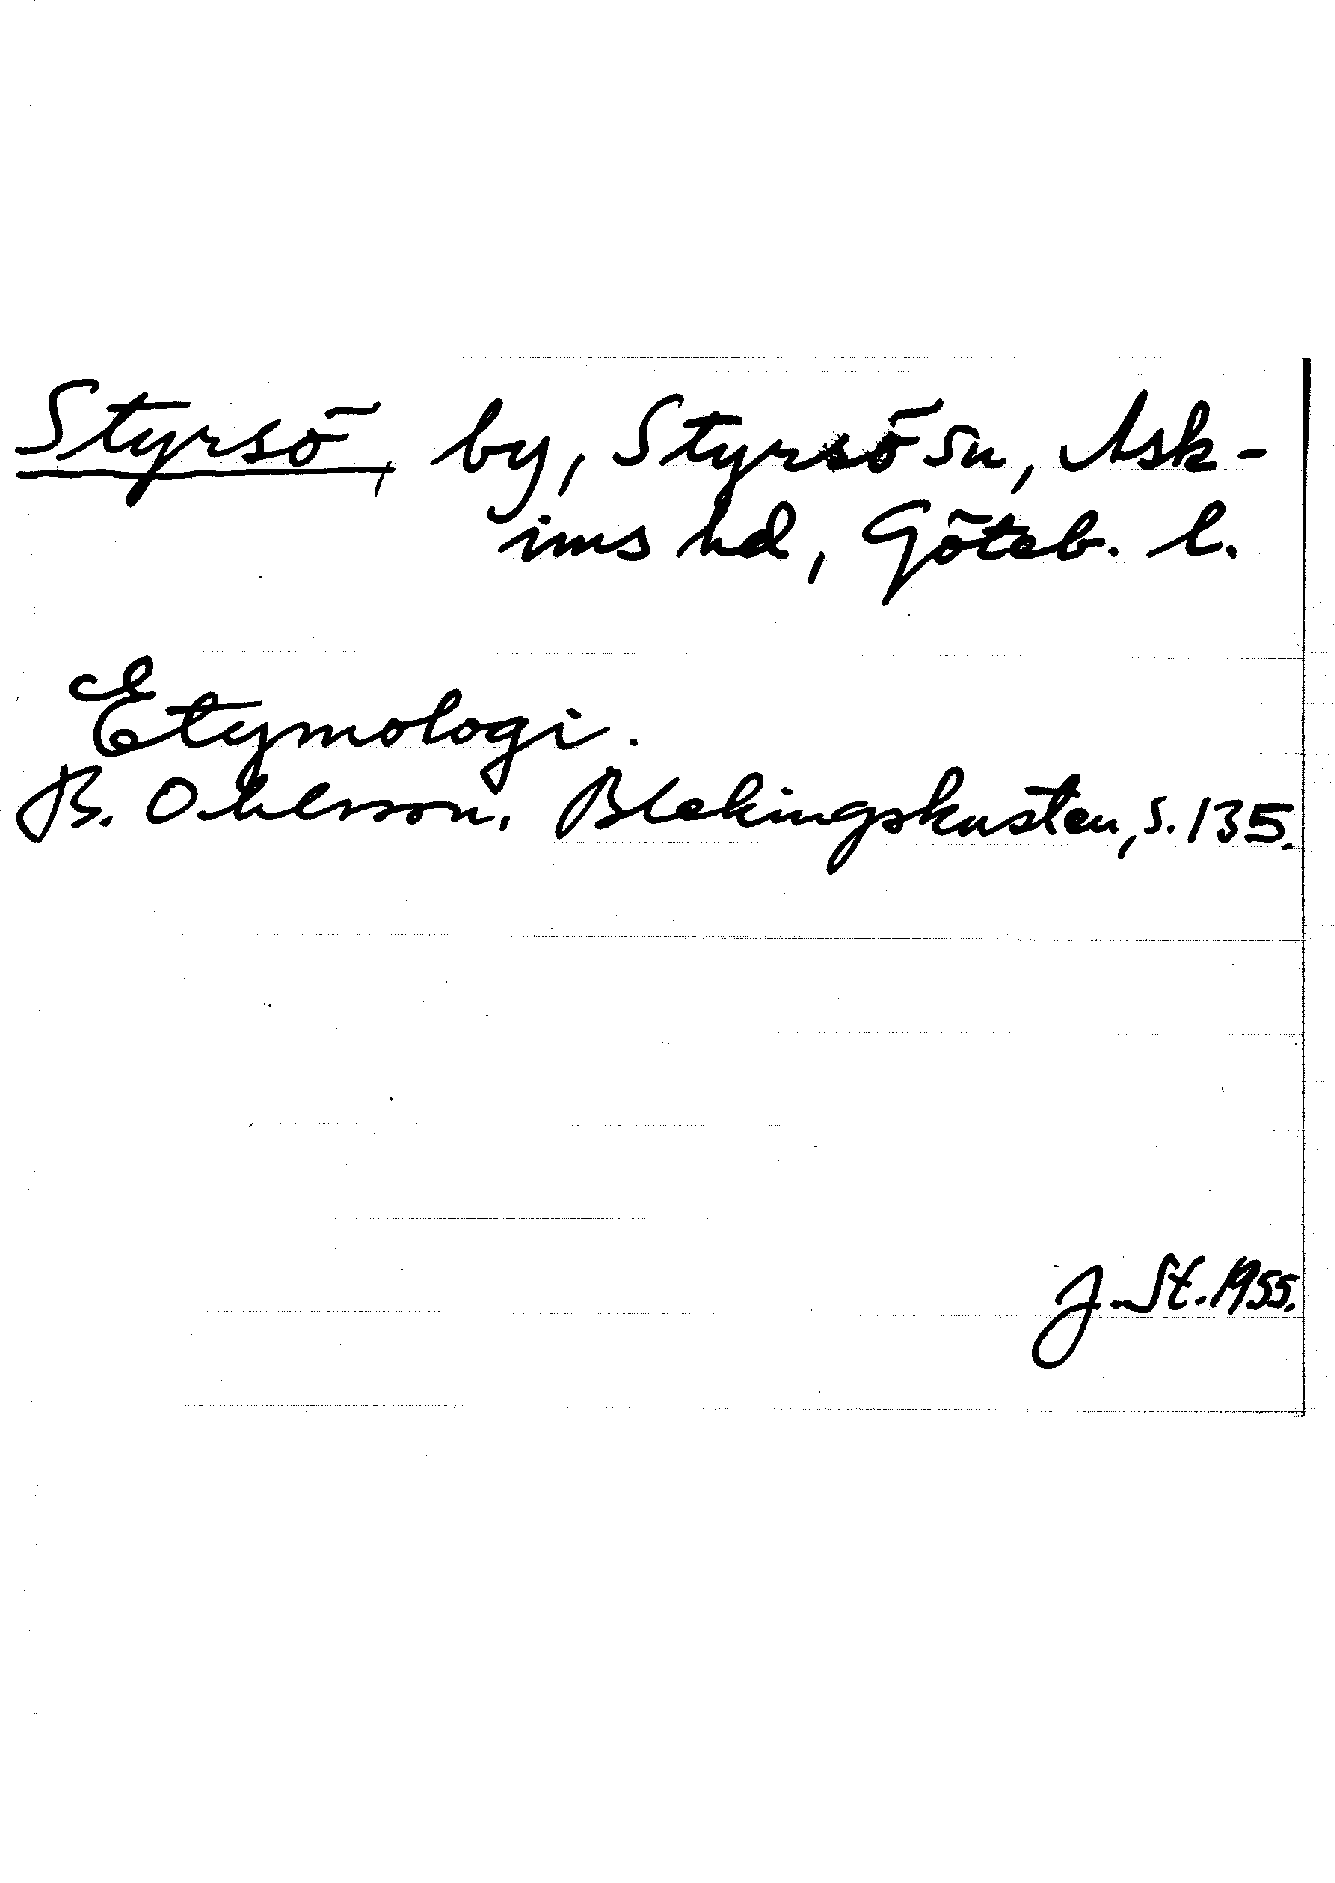 Styrsö, by, Styrsö sn, Ask-
ims hd, Göteb. l.
Etymologi.
B. Ohlsson, Blekingskusten, s. 135.
J. St. 1955.